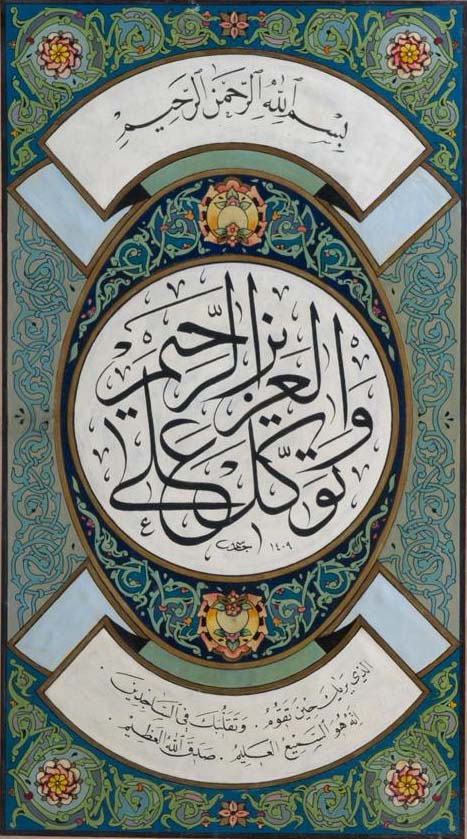 بِسْمِ اللهِ الرَّحْمَنِ الرَّحِيمِ
وَتَوَكَّلْ عَلَى الْعَزِيزِ الرَّحِيمِ
١٤٠٩
الذي يريك حين تقوم . وتقلبك في الساجدين .
إنه هو السميع العليم . صدق الله العظيم .